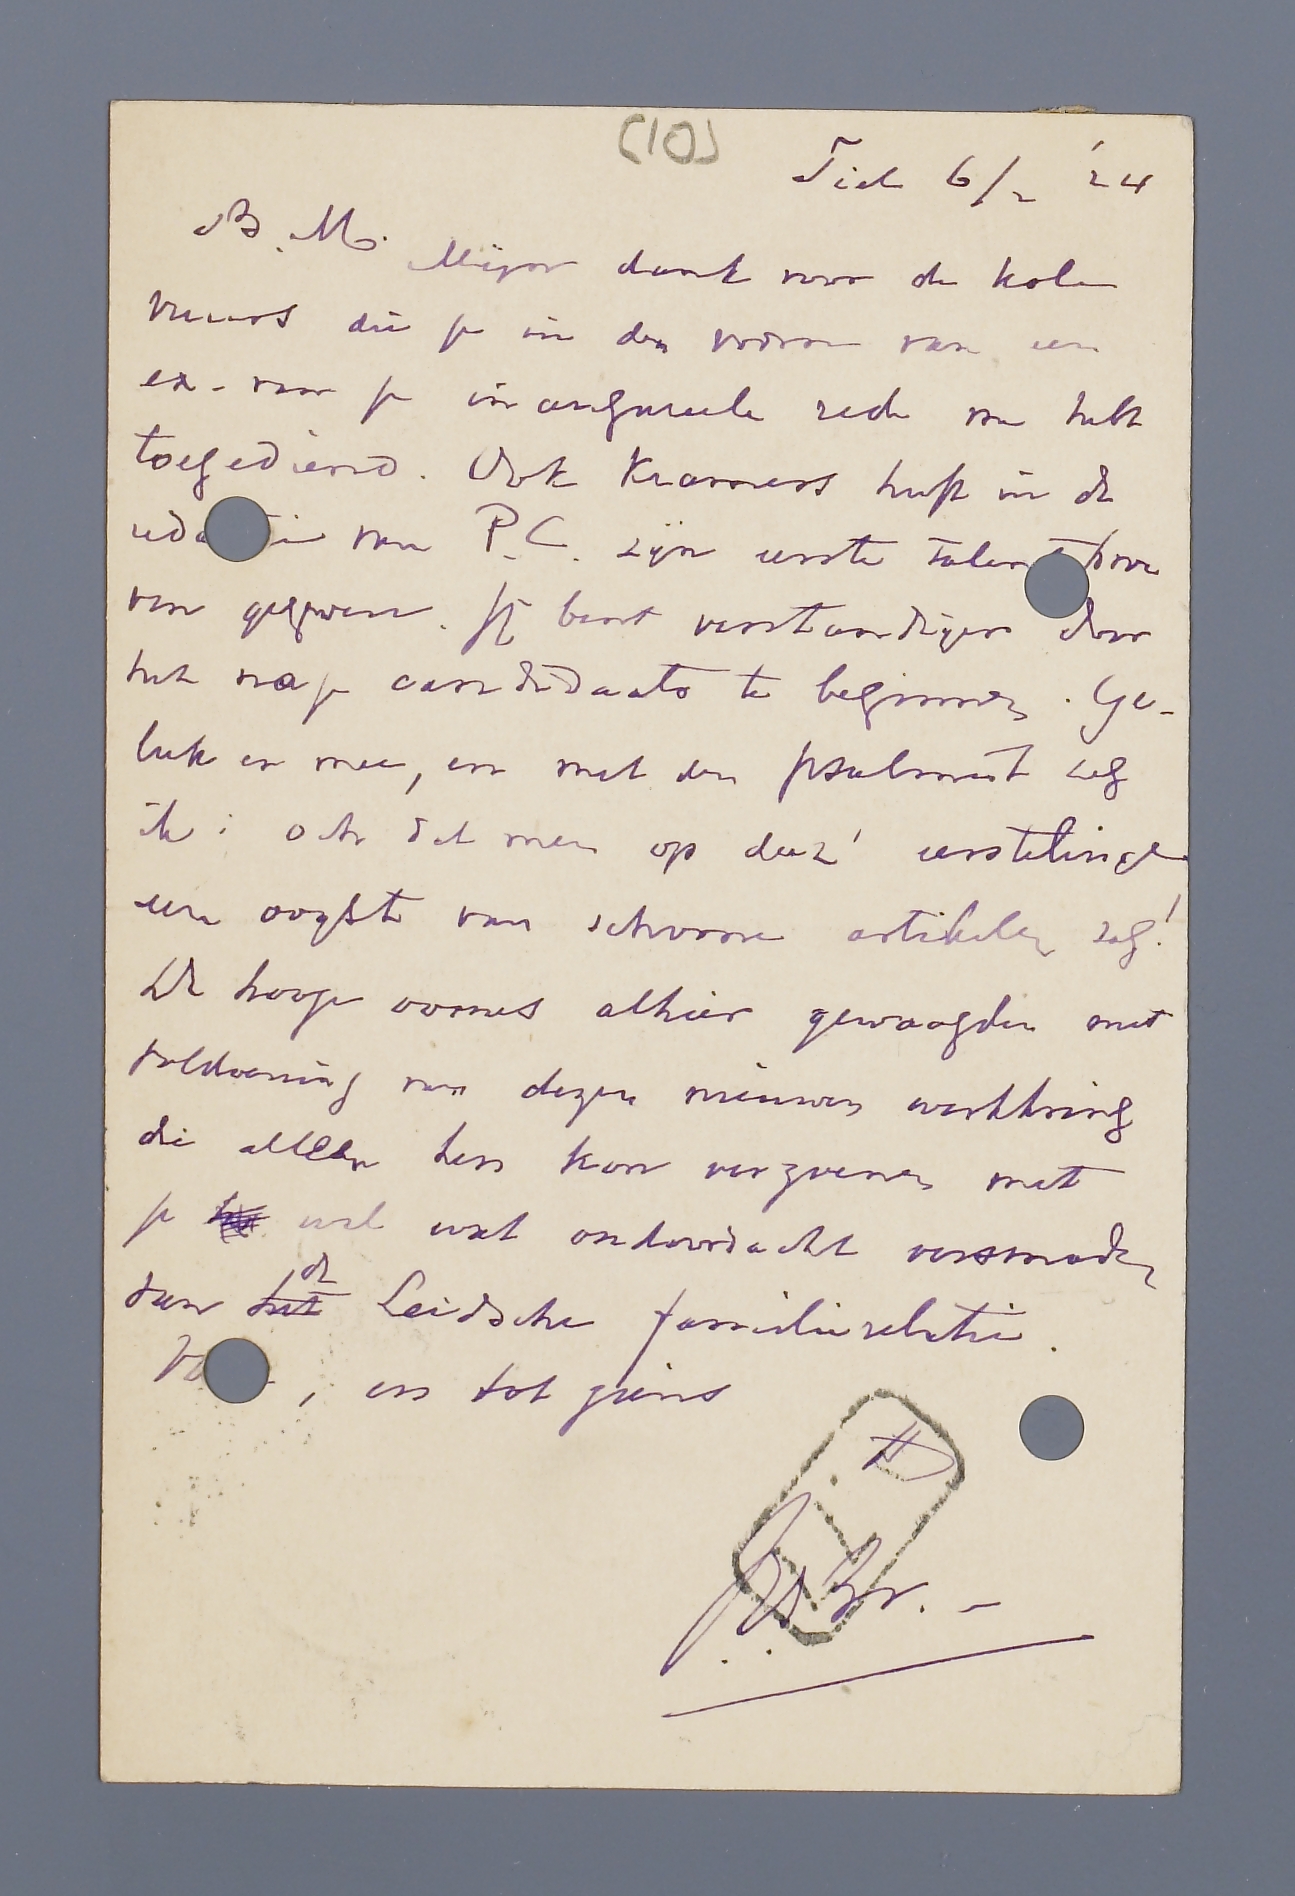 (10)
Tiel 6/2 '24
B. M.
Mijn dank voor de kolen
vuurs die je in den vorm van een
ex. van je inaugureele rede me hebt
toegediend. Ook Kramers heeft in de
reda i van P.C. zijn eerste talent proe
ven gegeven. Jij bent verstandiger door
het na je candidaats te beginnen. Ge-
luk er mee, en met den psalmist zeg
ik: och dat men op deez' eerstelinge
een oogst van schoone artikelen zag!
De hooge ooms alhier gewaagden met
voldoening van dezen nieuwen werkkring
die alleen hen kon verzoenen met
je wel wat ondoordacht versmaden
van het de Leidsche familierelatie.
, en tot ziens